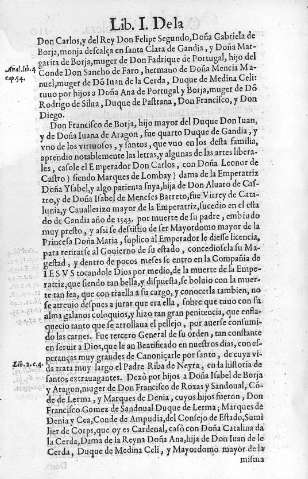 Lib. I. De la
Don Carlos, y del Rey Don Felipe Segundo, Doña Gabriela de
Borja, monja descalça en santa Clara de Gandia, y Doña Mar-
garita de Borja, muger de Don Fadrique de Portugal, hijo del
Conde Don Sancho de Faro, hermano de Doña Mencia Ma-
nuel, muger de Dõ Iuan de la Cerda, Duque de Medina Celi:
tuuo por hijos a Doña Ana de Portugal y Borja, muger de Dõ
Rodrigo de Silua, Duque de Pastrana, Don Francisco, y Don
Diego.
Don Francisco de Borja, hijo mayor del Duque Don Iuan,
y de Doña Iuana de Aragon, fue quarto Duque de Gandia, y
vno de los virtuosos, y santos, que vuo en los desta familia,
aprendio notablemente las letras, y algunas de las artes libera-
les, casole el Emperador Don Carlos, con Doña Leonor de
Castro (siendo Marques de Lombay) dama de la Emperatriz
Doña Ysabel, y algo parienta suya, hija de Don Aluaro de Cas-
tro, y de Doña Isabel de Meneses Barreto, fue Virrey de Cata-
luña, y Cauallerizo mayor de la Emperatriz, sucedio en el esta
do de Gandia año de 1543. por muerte de su padre, embiudo
muy presto, y assi se desistio de ser Mayordomo mayor de la
Princesa Doña Maria, suplico al Emperador le diesse licencia,
para retirarse al Gouierno de su estado, concediosela su Ma-
gestad, y dentro de pocos meses se entro en la Compañia de
IESVS tocandole Dios por medio, de la muerte de la Empe-
ratriz, que siendo tan bella, y dispuesta, se boluio con la muer-
te tan fea, que con traella a su cargo, y conocella tambien, no
se atreuio despues a jurar que era ella, sobre que tuuo con su
alma galanos coloquios, y hizo tan gran penitencia, que enfla-
quecio tanto que se arrollaua el pellejo, por auerse consumi-
do las carnes. Fue tercero General de su orden, tan constante
en seruir a Dios, que le an Beatificado en nuestros dias, con es-
peranças muy grandes de Canoniçarle por santo, de cuya vi-
da trata muy largo el Padre Riba de Neyra, en la historia de
santos extrauagantes. Dexò por hijos a Doña Isabel de Borja
y Aragon, muger de Don Francisco de Roxas y Sandoual, Cõ-
de de Lerma, y Marques de Denia, cuyos hijos fueron, Don
Francisco Gomez de Sandoual Duque de Lerma; Marques de
Denia y Cea, Conde de Ampudia, del Consejo de Estado, Sumi
ller de Corps, que oy es Cardenal, casò con Doña Catalina de
la Cerda, Dama de la Reyna Doña Ana, hija de Don Iuan de le
Cerda, Duque de Medina Celi, y Mayordomo mayor de la
misma
Anal. lib. 4
cap. 54.
Lib. 2. c. 4.